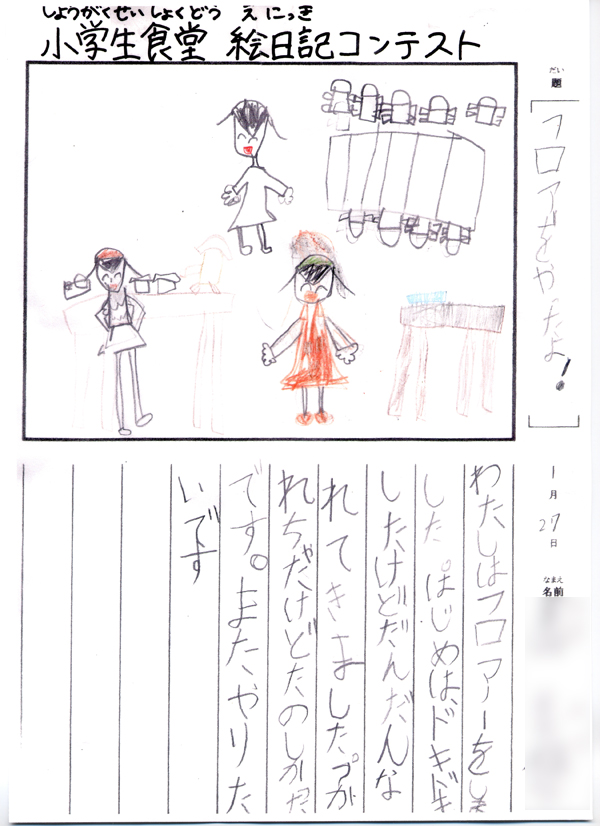 しょうがくせいしょくどう えにっき
小学生食堂 絵日記コンテスト
だい
題
フロアをやったよ!
1月27日
なまえ
名前
わたしはフロアーをしま
した はじめは、ドキドキ
したけどだんだんな
れてきました。つか
れちゃだけどたのしかた
です。またやりた
いです